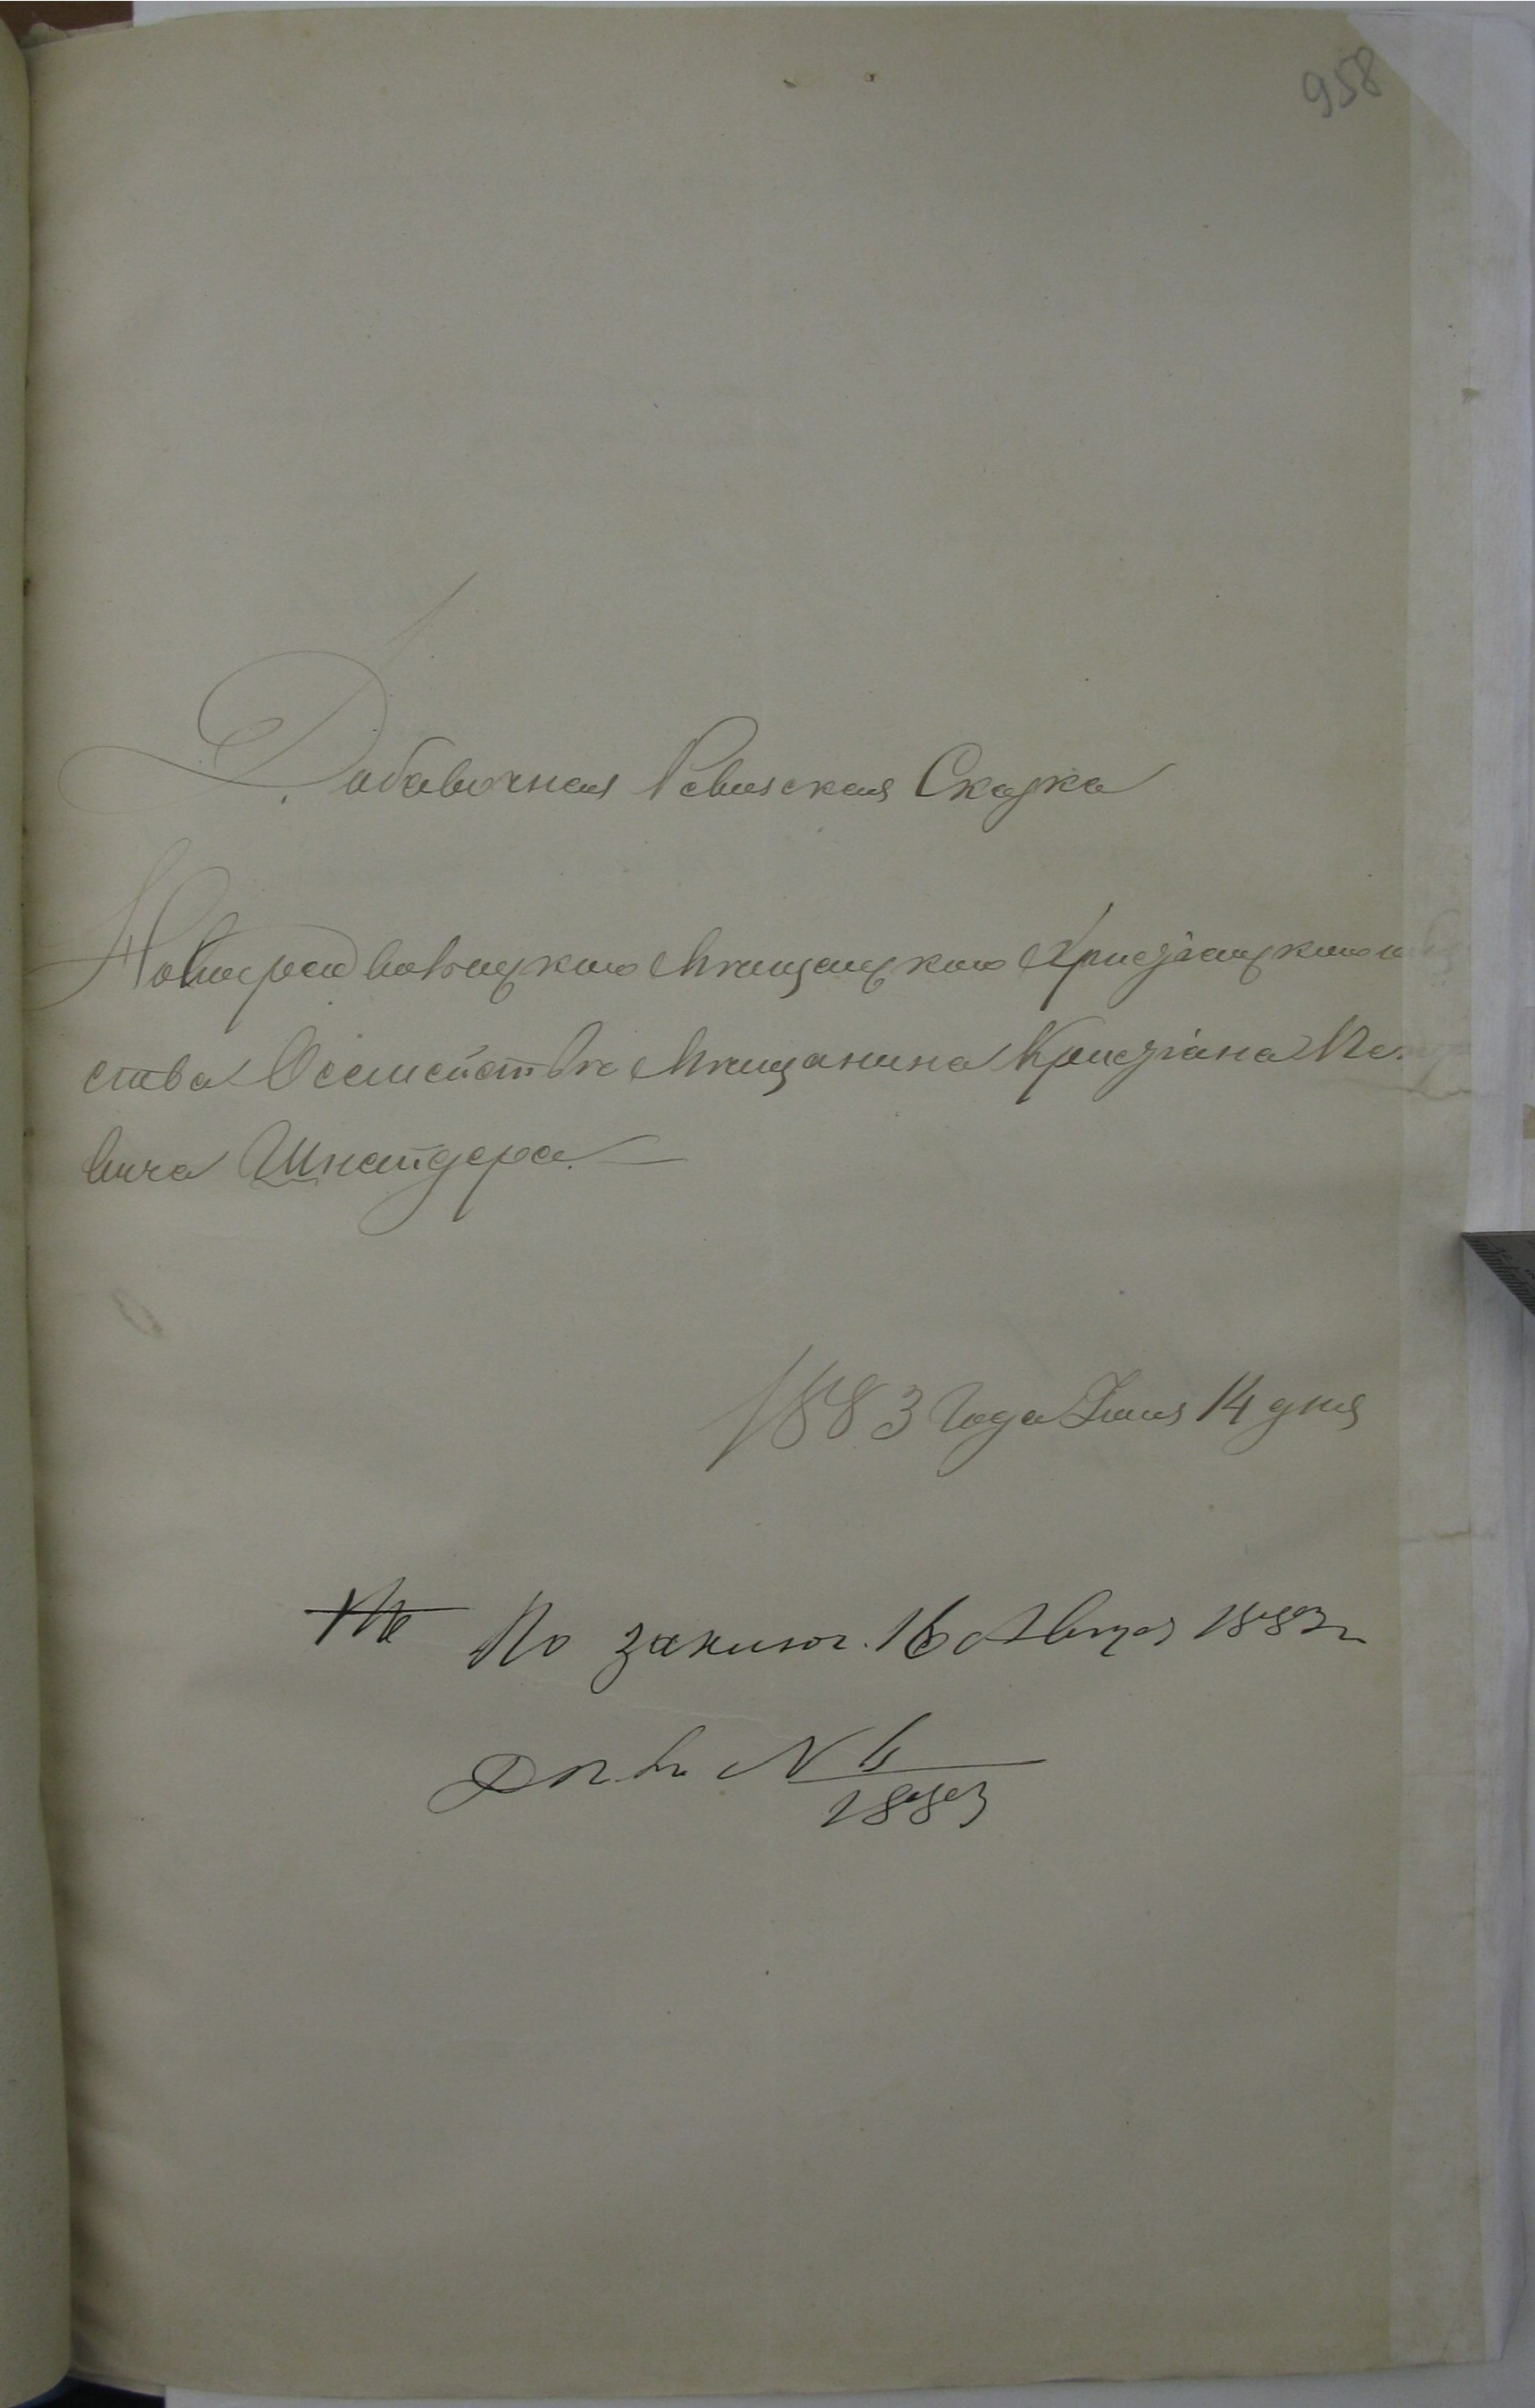 958
Добавочная Ревизская Сказка
Новоград Мещанского Христианского
ства О семействе Мещанина Христiана Пе
вича Шнайдера.
1883 года Iюня 14 дня
По заключ. 16 Августа 1883 г
№ 6
1883